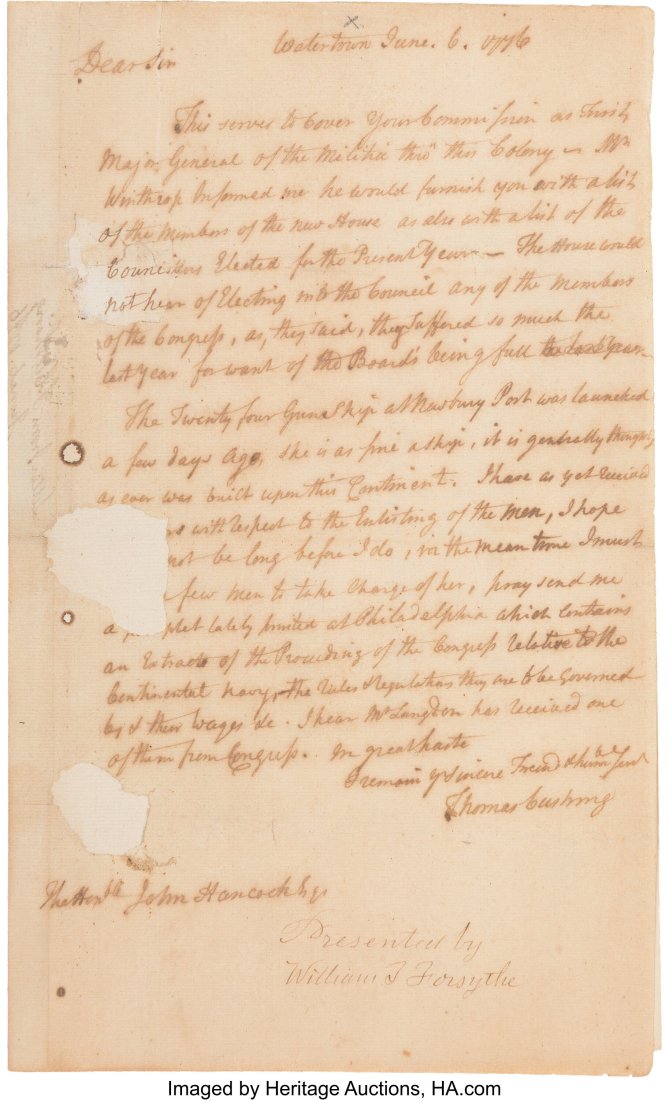 Watertown June. 6. 1776
Dear Sir
This serves to Cover Your Commission as First
Major General of the Militia thro' this Colony — Mr
Winthrop Informed me he would furnish you with a list
of the Members of the new House as also with a list of the
Councillors Elected for the Present Year — The House would
not hear of Electing into the Council any of the Members
of the Congress, as, they said, they suffered so much the
last Year for want of the Board's being full the last Year
The Twenty four Gun Ship at Newbury Port was launched
a few days ago, she is as fine a ship, it is generally thought,
as ever was built upon this Continent. I have as yet received
with respect to the Enlisting of the men, I hope
not be long before I do, in the mean time I must
few men to take Charge of her, pray send me
a lately printed at Philadelphia which Contains
an Extract of the Proceeding of the Congress relative to the
Continental navy, the rules & regulations they are to be Governed
by & their wages &c. I hear Mr Langdon has received one
of them from Congress. In great haste
I remain yr Sincere Freind & hume Servt
Thomas Cushing
The Honble John Hancock Esqr
Presented by
William J Forsythe
Imaged by Heritage Auctions, HA.com